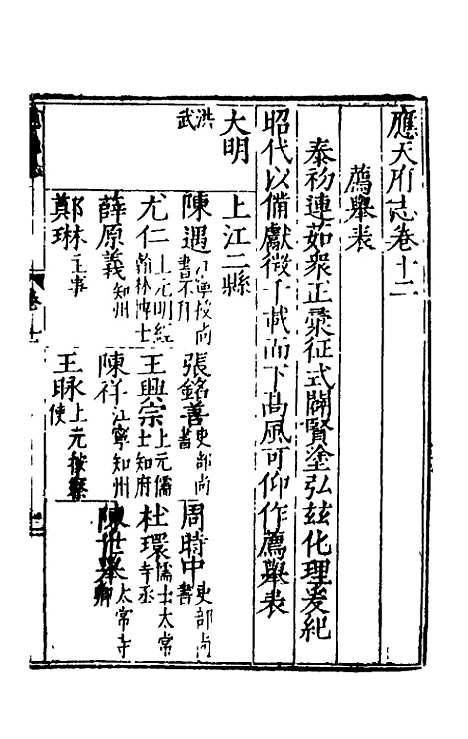 應天府志卷十二
薦舉表
泰初連茹衆正彙征式闢賢塗弘玆化理爰紀
昭代以備獻徵千載而下高風可仰作薦舉表
大明 上江二縣
洪武
陳遇 江寧授尚書不仕
張銘善 吏部尚書
周時中 吏部尚書
尤仁 上元明經翰林博士
王興宗 上元儒士知府
杜環 儒士太常寺丞
薛原義 知州
陳祥 江寧知州
陳世舉 太常寺卿
鄭琳 主事
王昹 上元按察使